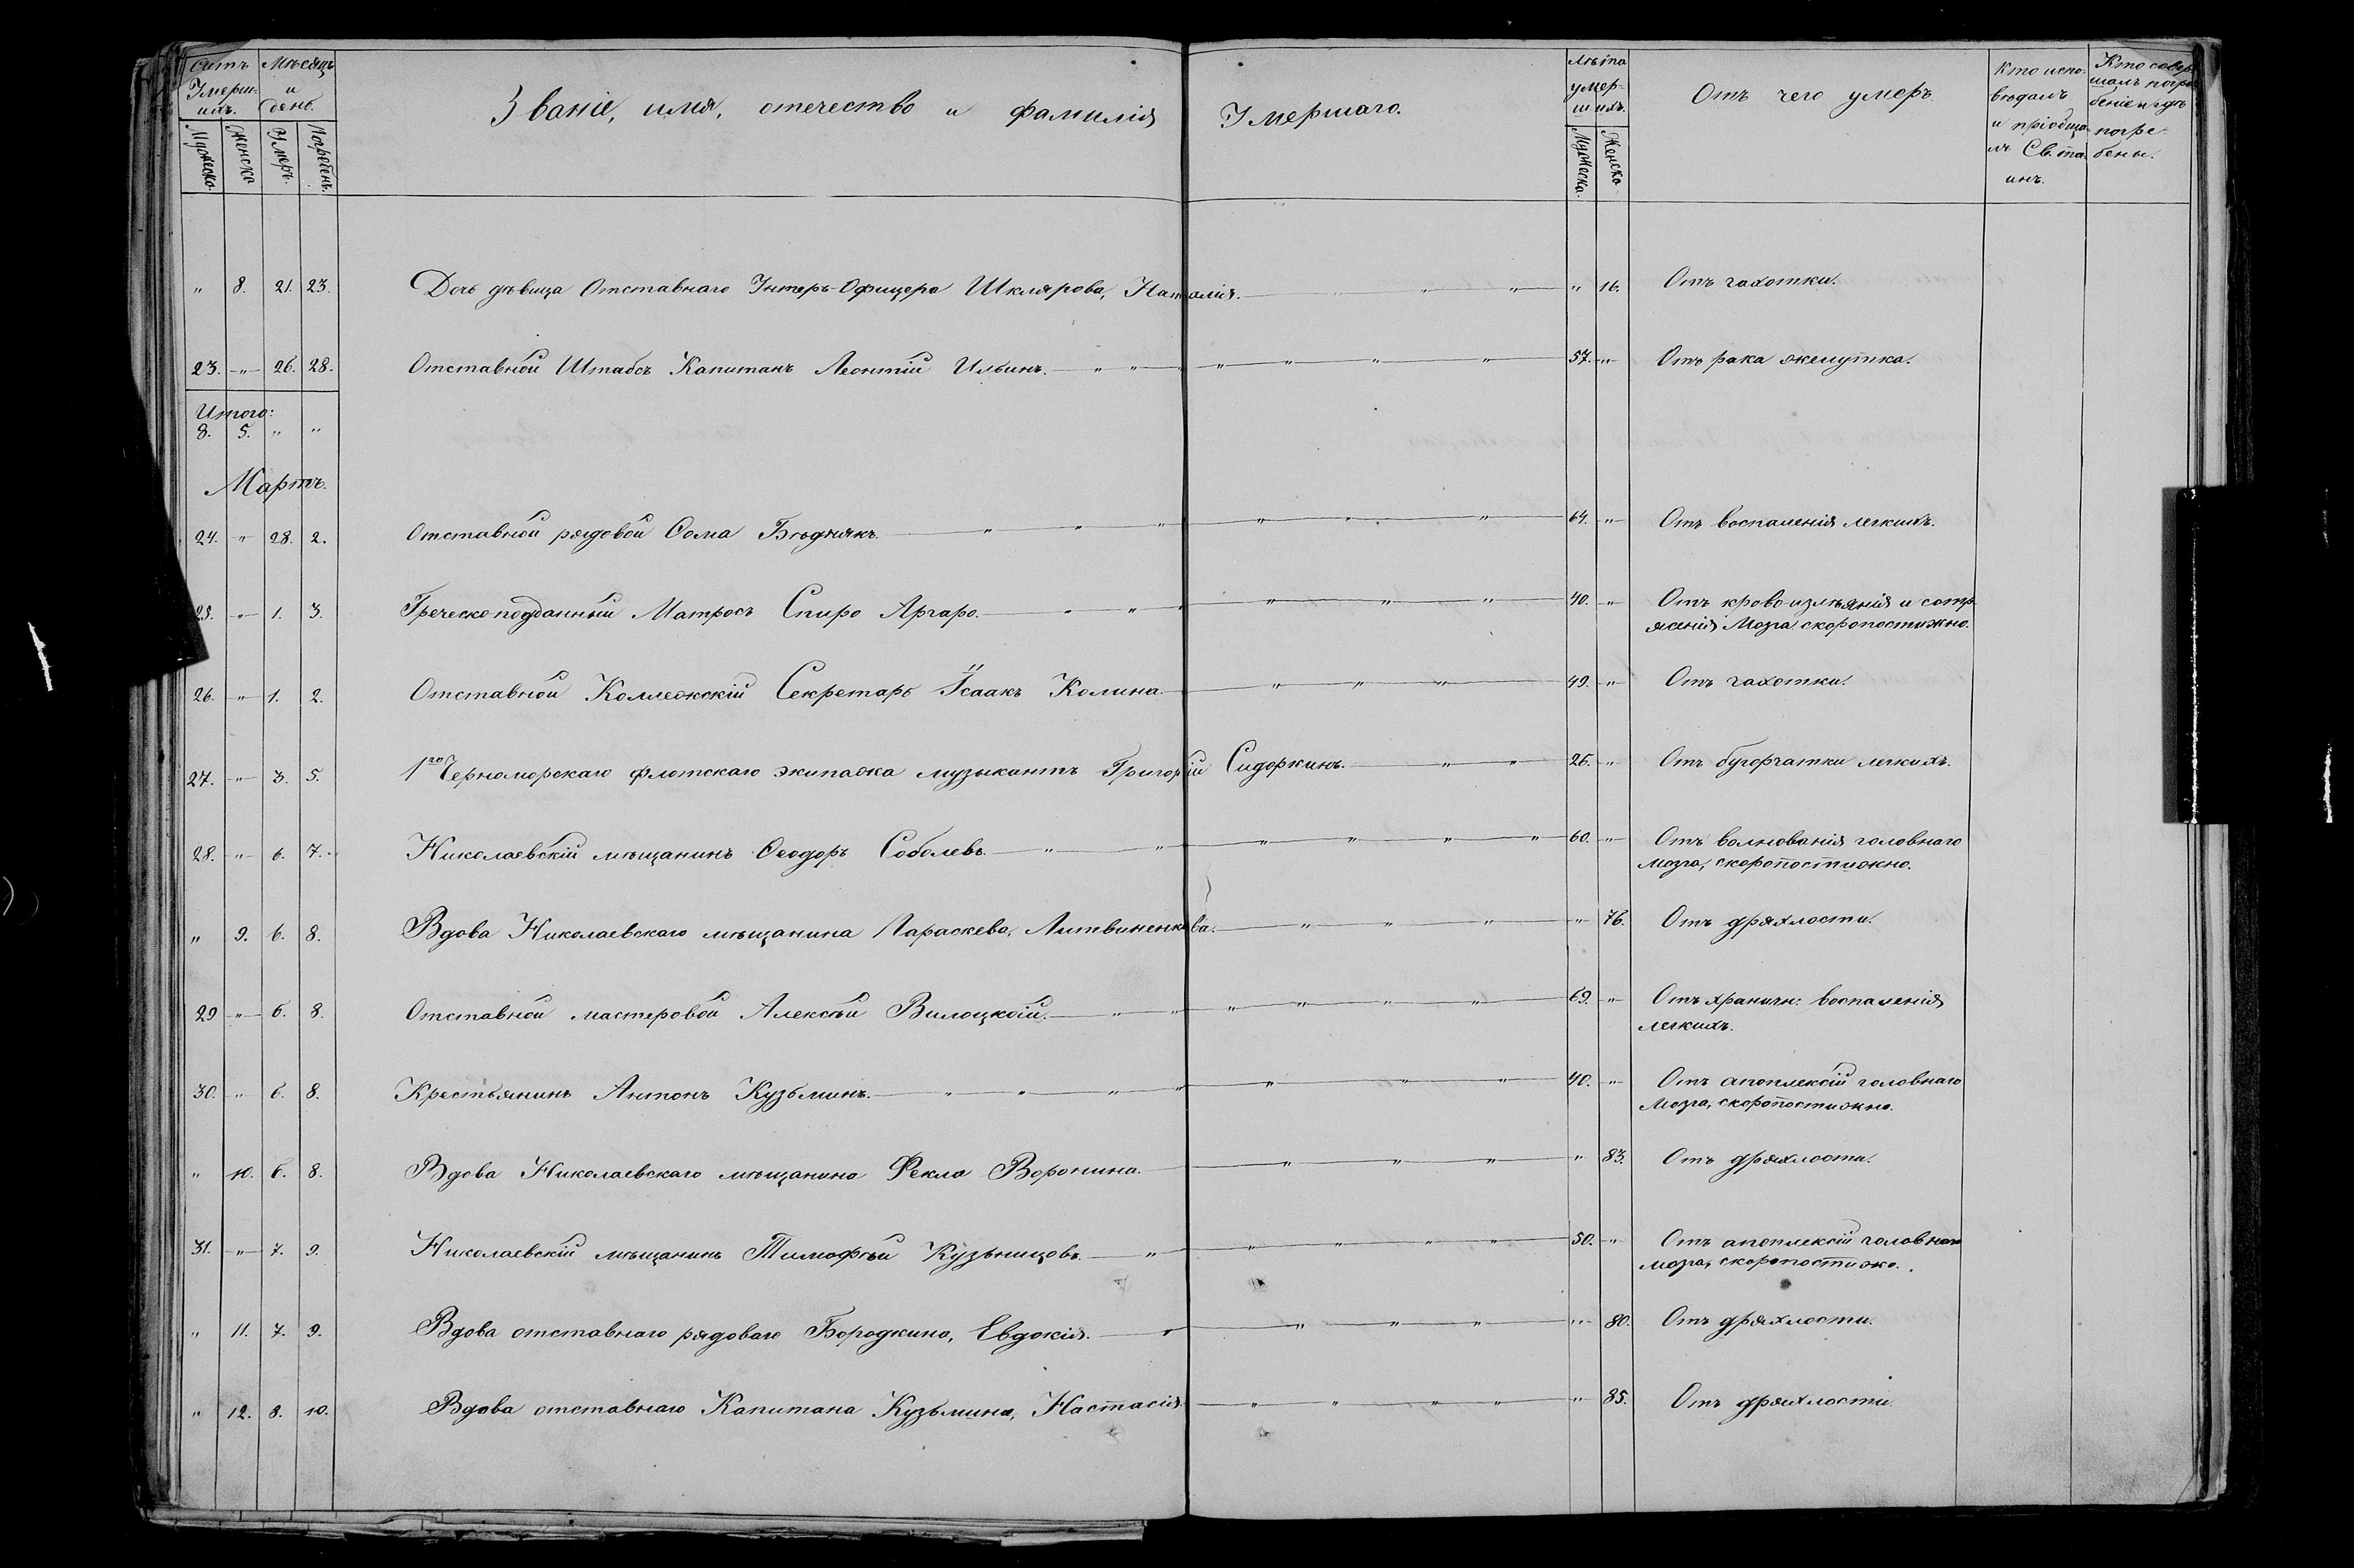 Счетъ Умершихъ. Мѣсяцъ и день. Званіе, имя, отечество и фамилія Умершаго. Лѣта умершихъ. Отъ чего умеръ. Кто исповѣдалъ и пріобщалъ Св. таинъ. Кто совершалъ погребеніе и гдѣ погребены.
Мужеска. Женска Умеръ. Погребенъ. Мужеска. Женска
" 8. 21. 23. Дочь дѣвица Отставнаго Унтеръ-Офицера Шклярова, Наталія. " 16. Отъ чахотки.
23. " 26. 28. Отставной Штабсъ Капитанъ Леонтій Ильинъ. 57. " Отъ рака желудка.
Итого:
8. 5. " "
Мартъ.
24. " 28. 2. Отставной рядовой Ѳома Бѣднякъ. 64. " Отъ воспаленія легкихъ.
25. " 1. 3. Греческоподданный Матросъ Спиро Аргаро. 40. " Отъ кровоизлѣянія и сотр-
ясенія Мозга скоропостижно.
26. " 1. 2. Отставной Коллежскій Секретарь Ісаакъ Колина. 49. " Отъ чахотки.
27. " 3. 5. 1го Черноморскаго флотскаго экипажа музыкантъ Григорій Сидоркинъ. 26. " Отъ бугорчатки легкихъ.
28. " 6. 7. Николаевскій мѣщанинъ Ѳеодоръ Соболевъ. 60. " Отъ волнованія головнаго
мозга, скоропостижно.
" 9. 6. 8. Вдова Николаевскаго мѣщанина Параскева, Литвиненкова. " 76. Отъ дряхлости.
29 " 6. 8. Отставной мастеровой Алексѣй Вилоцкой. 69. " Отъ храничн: воспаленія
легкихъ.
30. " 6. 8. Крестьянинъ Антонъ Кузьминъ. 40. " Отъ апоплексій головнаго
Мозга, скоропостижно.
" 10. 6. 8. Вдова Николаевскаго мѣщанина Фекла Воронина. " 83. Отъ дряхлости.
31. " 7. 9. Николаевскій мѣщанинъ Тимофѣй Кузьницовъ. 50. " Отъ апоплексій головнаго
мозга, скоропостижо.
" 11. 7. 9. Вдова отставнаго рядоваго Бородкина, Евдокія. " 80. Отъ дряхлости.
" 12. 8. 10. Вдова отставнаго Капитана Кузьмина, Настасія. " 85. Отъ дряхлости.